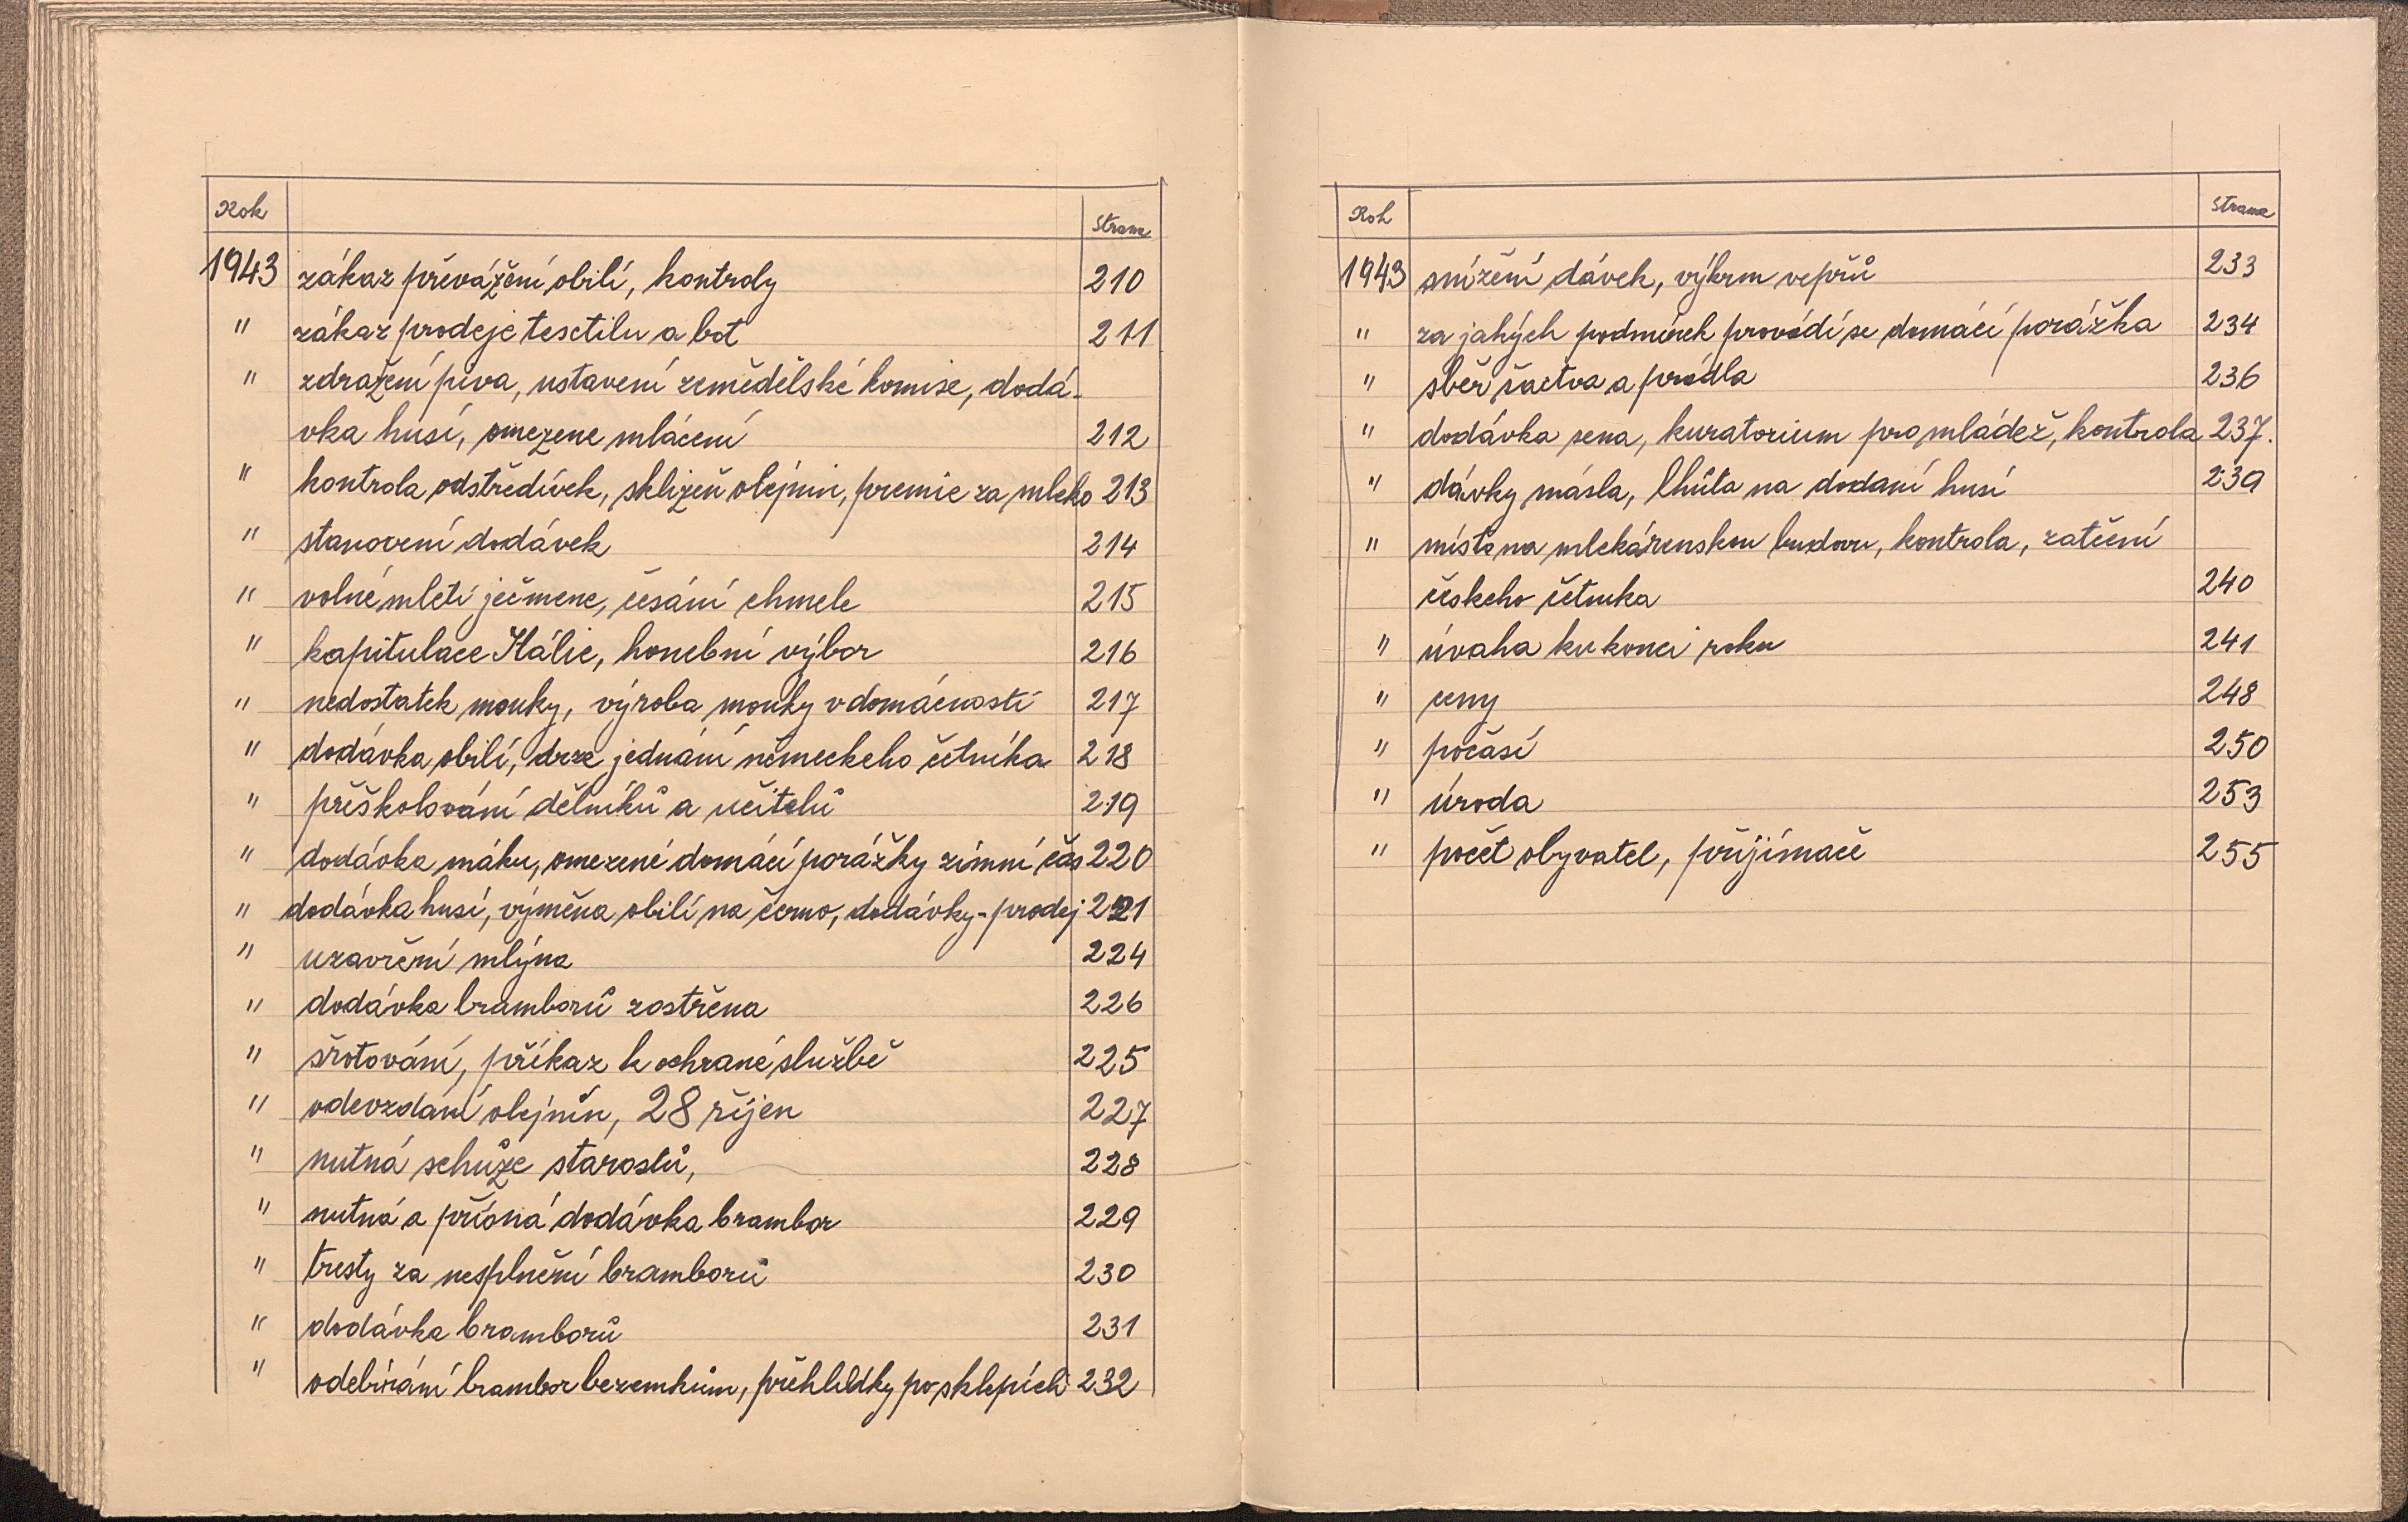 Rok Strana
1943 zákaz převážení obilí, kontroly 210
" zákaz prodeje tesctilu a bot 211
" zdražení piva, ustavení zemědělské komise, dodá-
vka husí, omezene mlácení 212
" kontrola odstředívek, sklizeň olejnin, premie za mleko 213
" stanovení dodávek 214
" volné mletí ječmene, česání chmele 215
" kapitulace Itálie, honební výbor 216
" nedostatek mouky, výroba mouky v domácnosti 217
" dodávka obilí, drze jednání německeho četníka 218
" přeškolování dělníků a učitelů 219
" dodávka máku, omezené domácí porážky zimní čas 220
" dodávka husí, výměna obilí na černo, dodávky-prodej 221
" uzavření mlýna 224
" dodávka bramborů zostřena 226
" šrotování, příkaz k ochrané službě 225
" odevzdaní olejnin, 28 říjen 227
" nutná schůze starostů, 228
" nutná a přísná dodávka brambor 229
" tresty za nesplnění bramborů 230
" dodávka bramborů 231
" odebírání brambor bezemkům, přehlídky po sklepích 232
Rok Strana
1943 snížení dávek, výkrm vepřů 233
" za jakých podmínek provádí se domácí porážka 234
" sběr šactva a prádla 236
" dodávka sena, kuratorium pro mládež, kontrola 237.
" dávky másla, lhůta na dodaní husí 239
" místo na mlekárenskou budovu, kontrola, zatčení
českeho četníka 240
" úvaha ku konci roku 241
" ceny 248
" počasí 250
" úroda 253
" počet obyvatel, přijímače 255